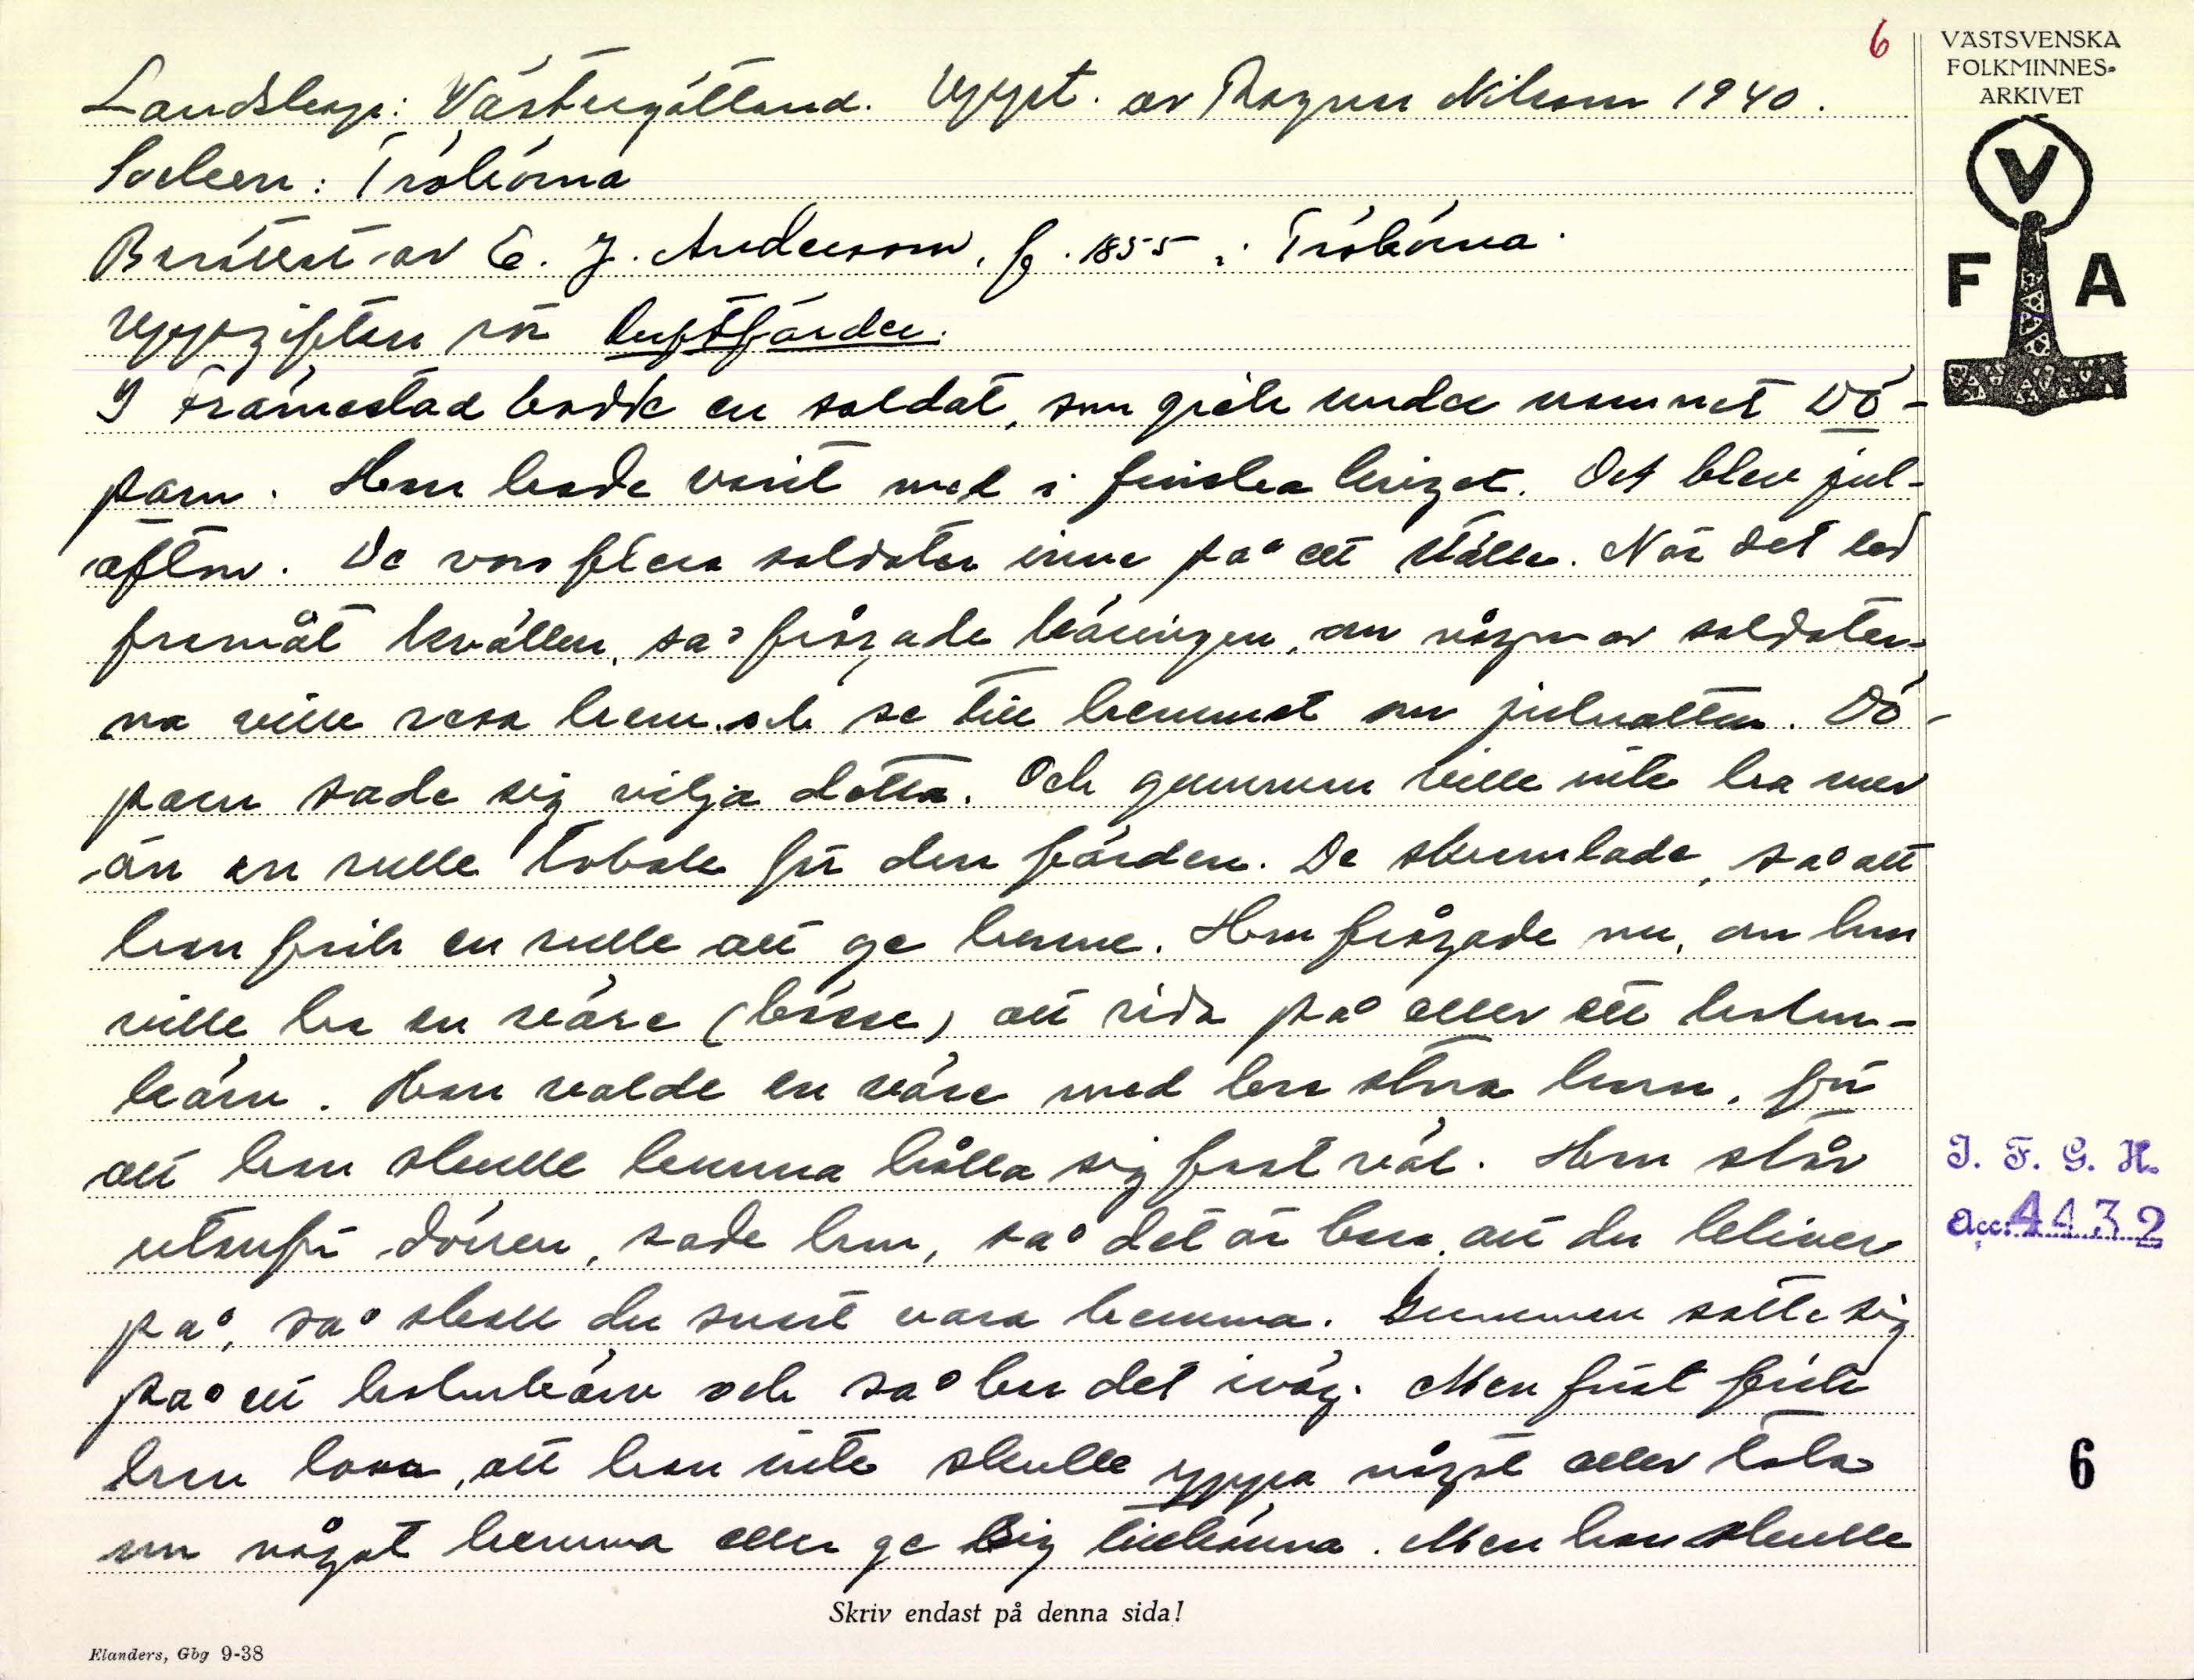 6
VÄSTSVENSKA
FOLKMINNES-
ARKIVET
V
F A
Landskap: Västergötland. Uppt. av Ragnar Nilsson 1940.
Socken: Trökörna
Berättat av E. J. Andersson, f. 1855 i Trökörna.
Uppgiften rör luftfärder.
I Främmestad bodde en soldat, som gick under namnet Dö-
parn. Han hade varit med i finska kriget. Det blev jul-
afton. De voro flera soldater inne på ett ställe. När det led
framåt kvällen, så frågade käringen, om någon av soldater-
na ville resa hem och se till hemmet om julnatten. Dö-
parn sade sig vilja detta. Och gumman ville inte ha mer
än en rulle tobak för den färden. De skramlade, så att
han fick en rulle att ge henne. Hon frågade nu, om han
ville ha en väre (bässe) att rida på eller ett halm-
kärv. Han valde en väre med bra stora horn, för
att han skulle kunna hålla sig fast väl. Han står
utanför dörren, sade hon, så det är bara att du kliver
på, så skall du snart vara hemma. Gumman satte sig
på ett halmkärv och så bar det iväg. Men först fick
han lova, att han inte skulle yppa något eller tala
om något hemma eller ge sig tillkänna. Men han skulle
J. F. G. H.
Acc. 4432
6
Skriv endast på denna sida!
Elanders, Gbg 9-38